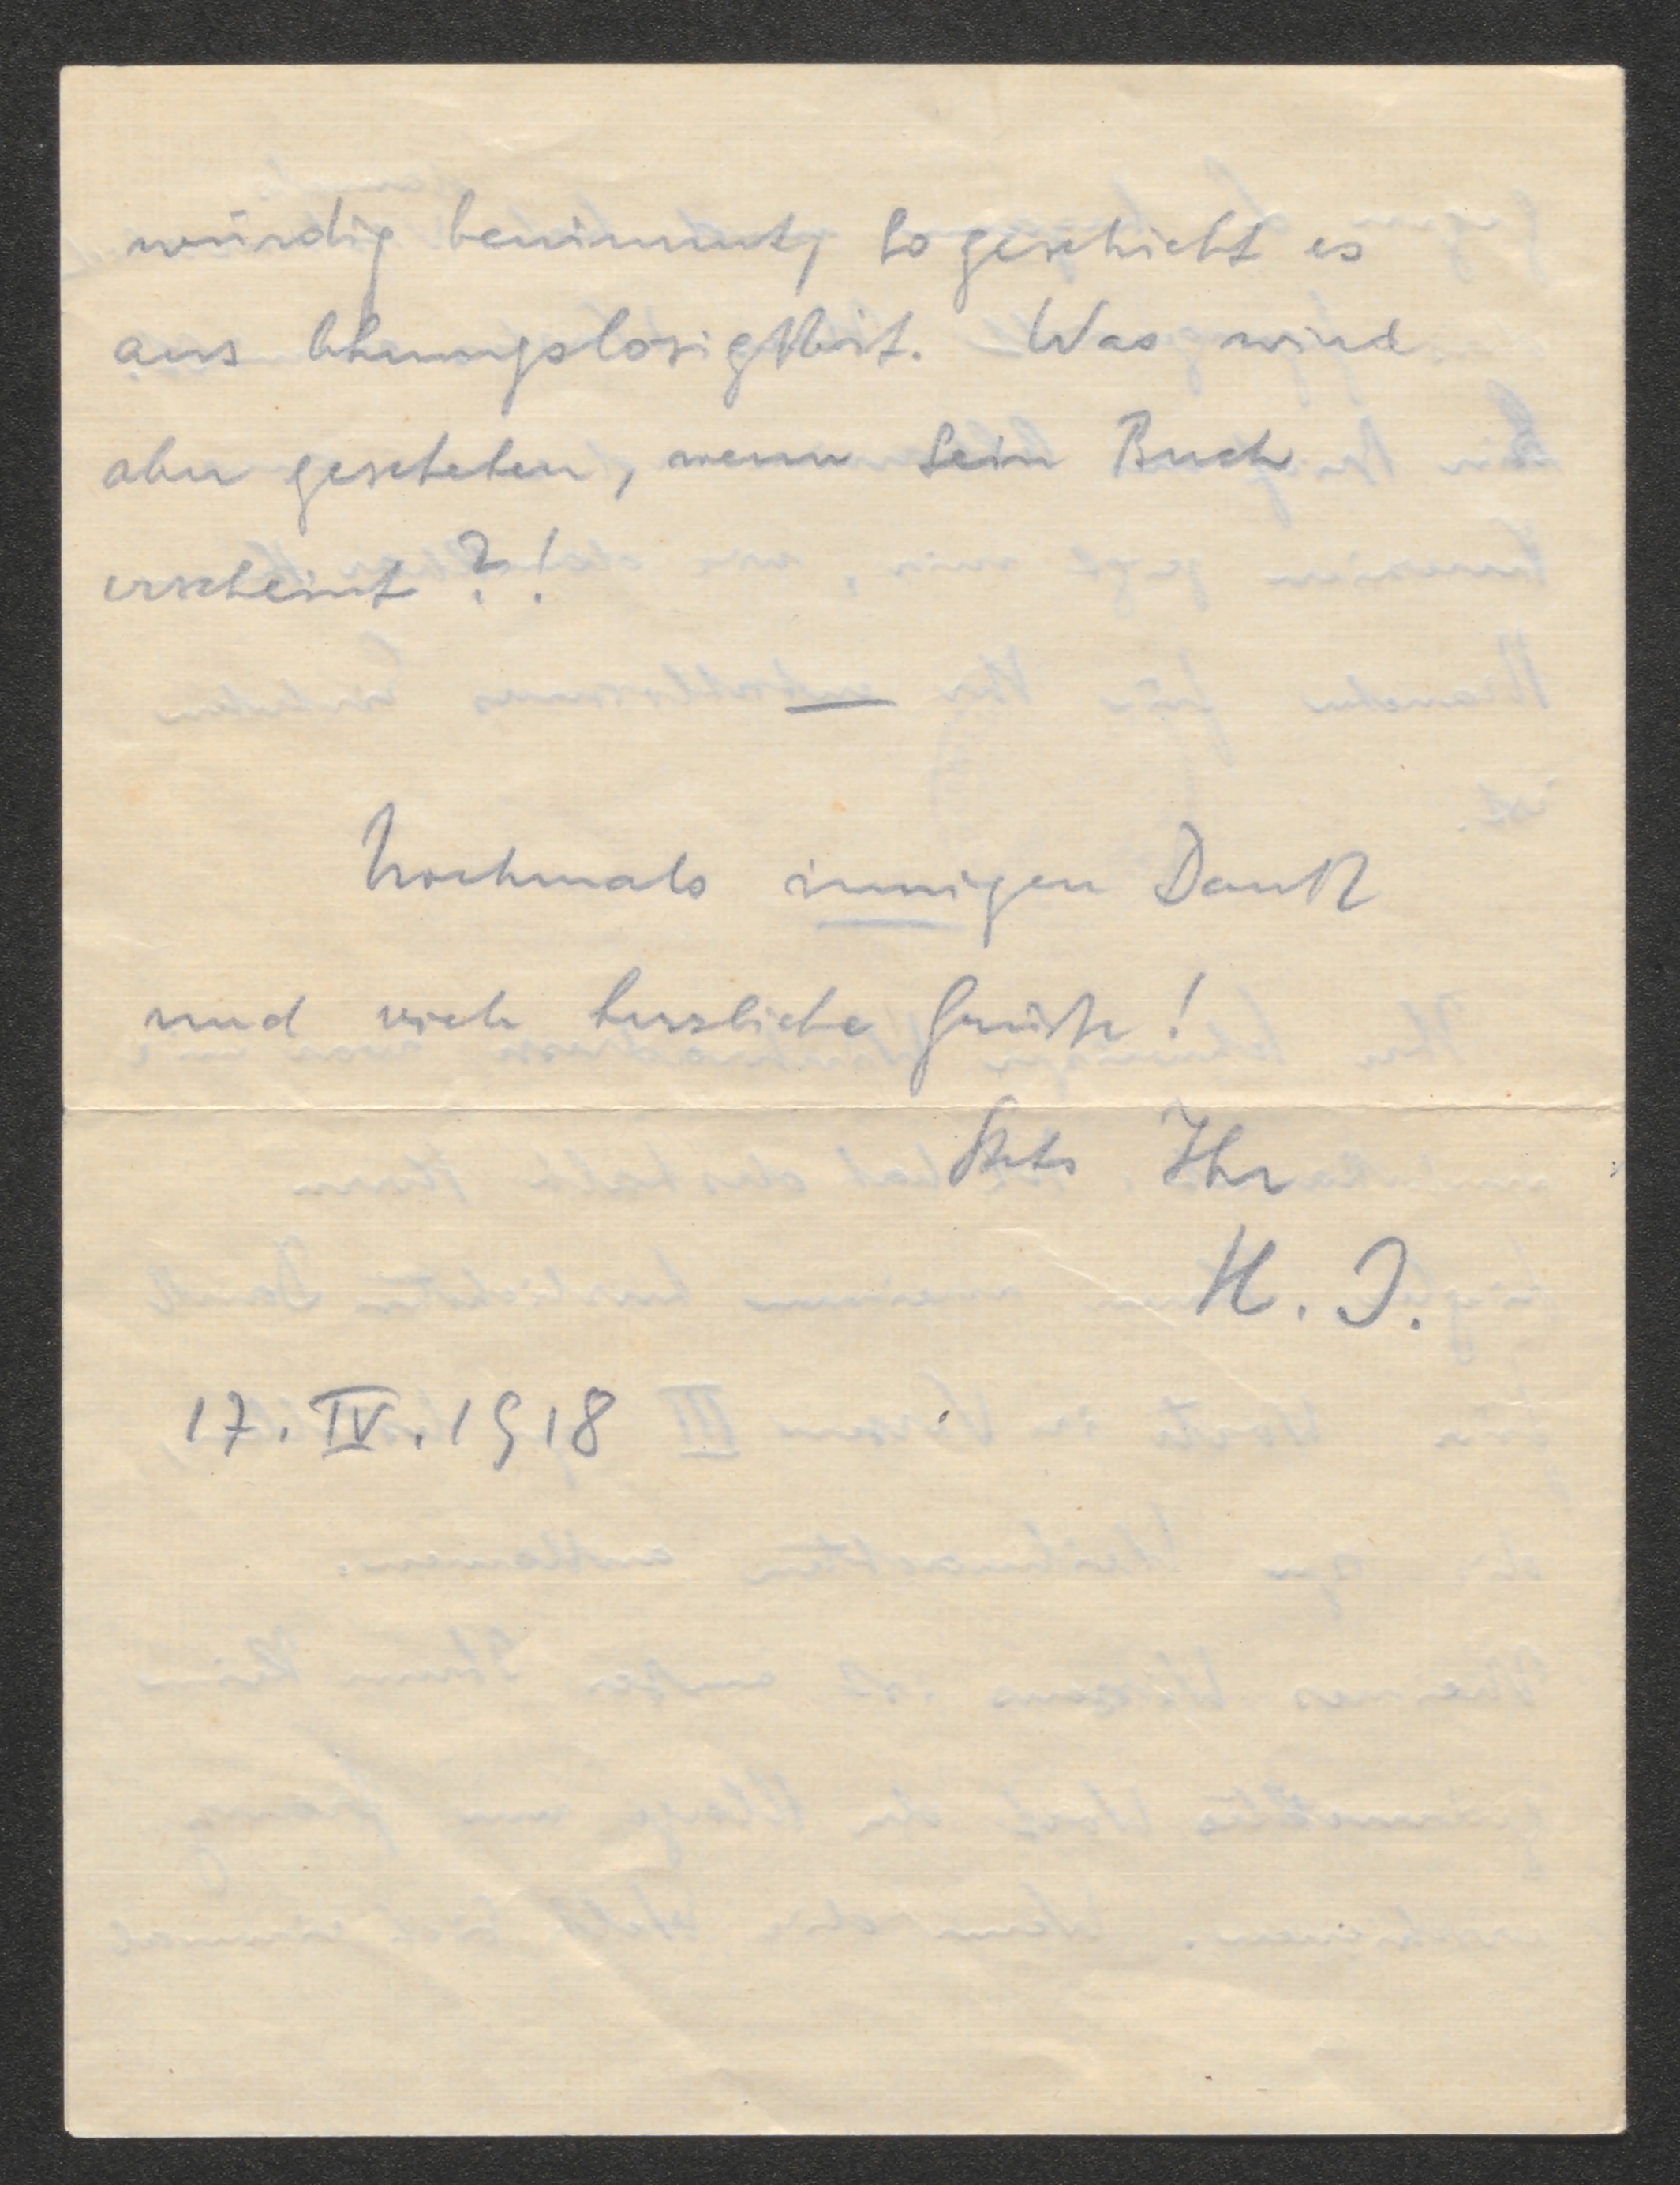 würdig benimmt, so geschieht es
aus Ahnungslosigkeit. Was wird
aber geschehen, wenn sein Buch
erscheint?!
Nochmals innigen Dank
und viele herzliche Grüße!
Stets Ihr
H. J.
17. IV. 1918